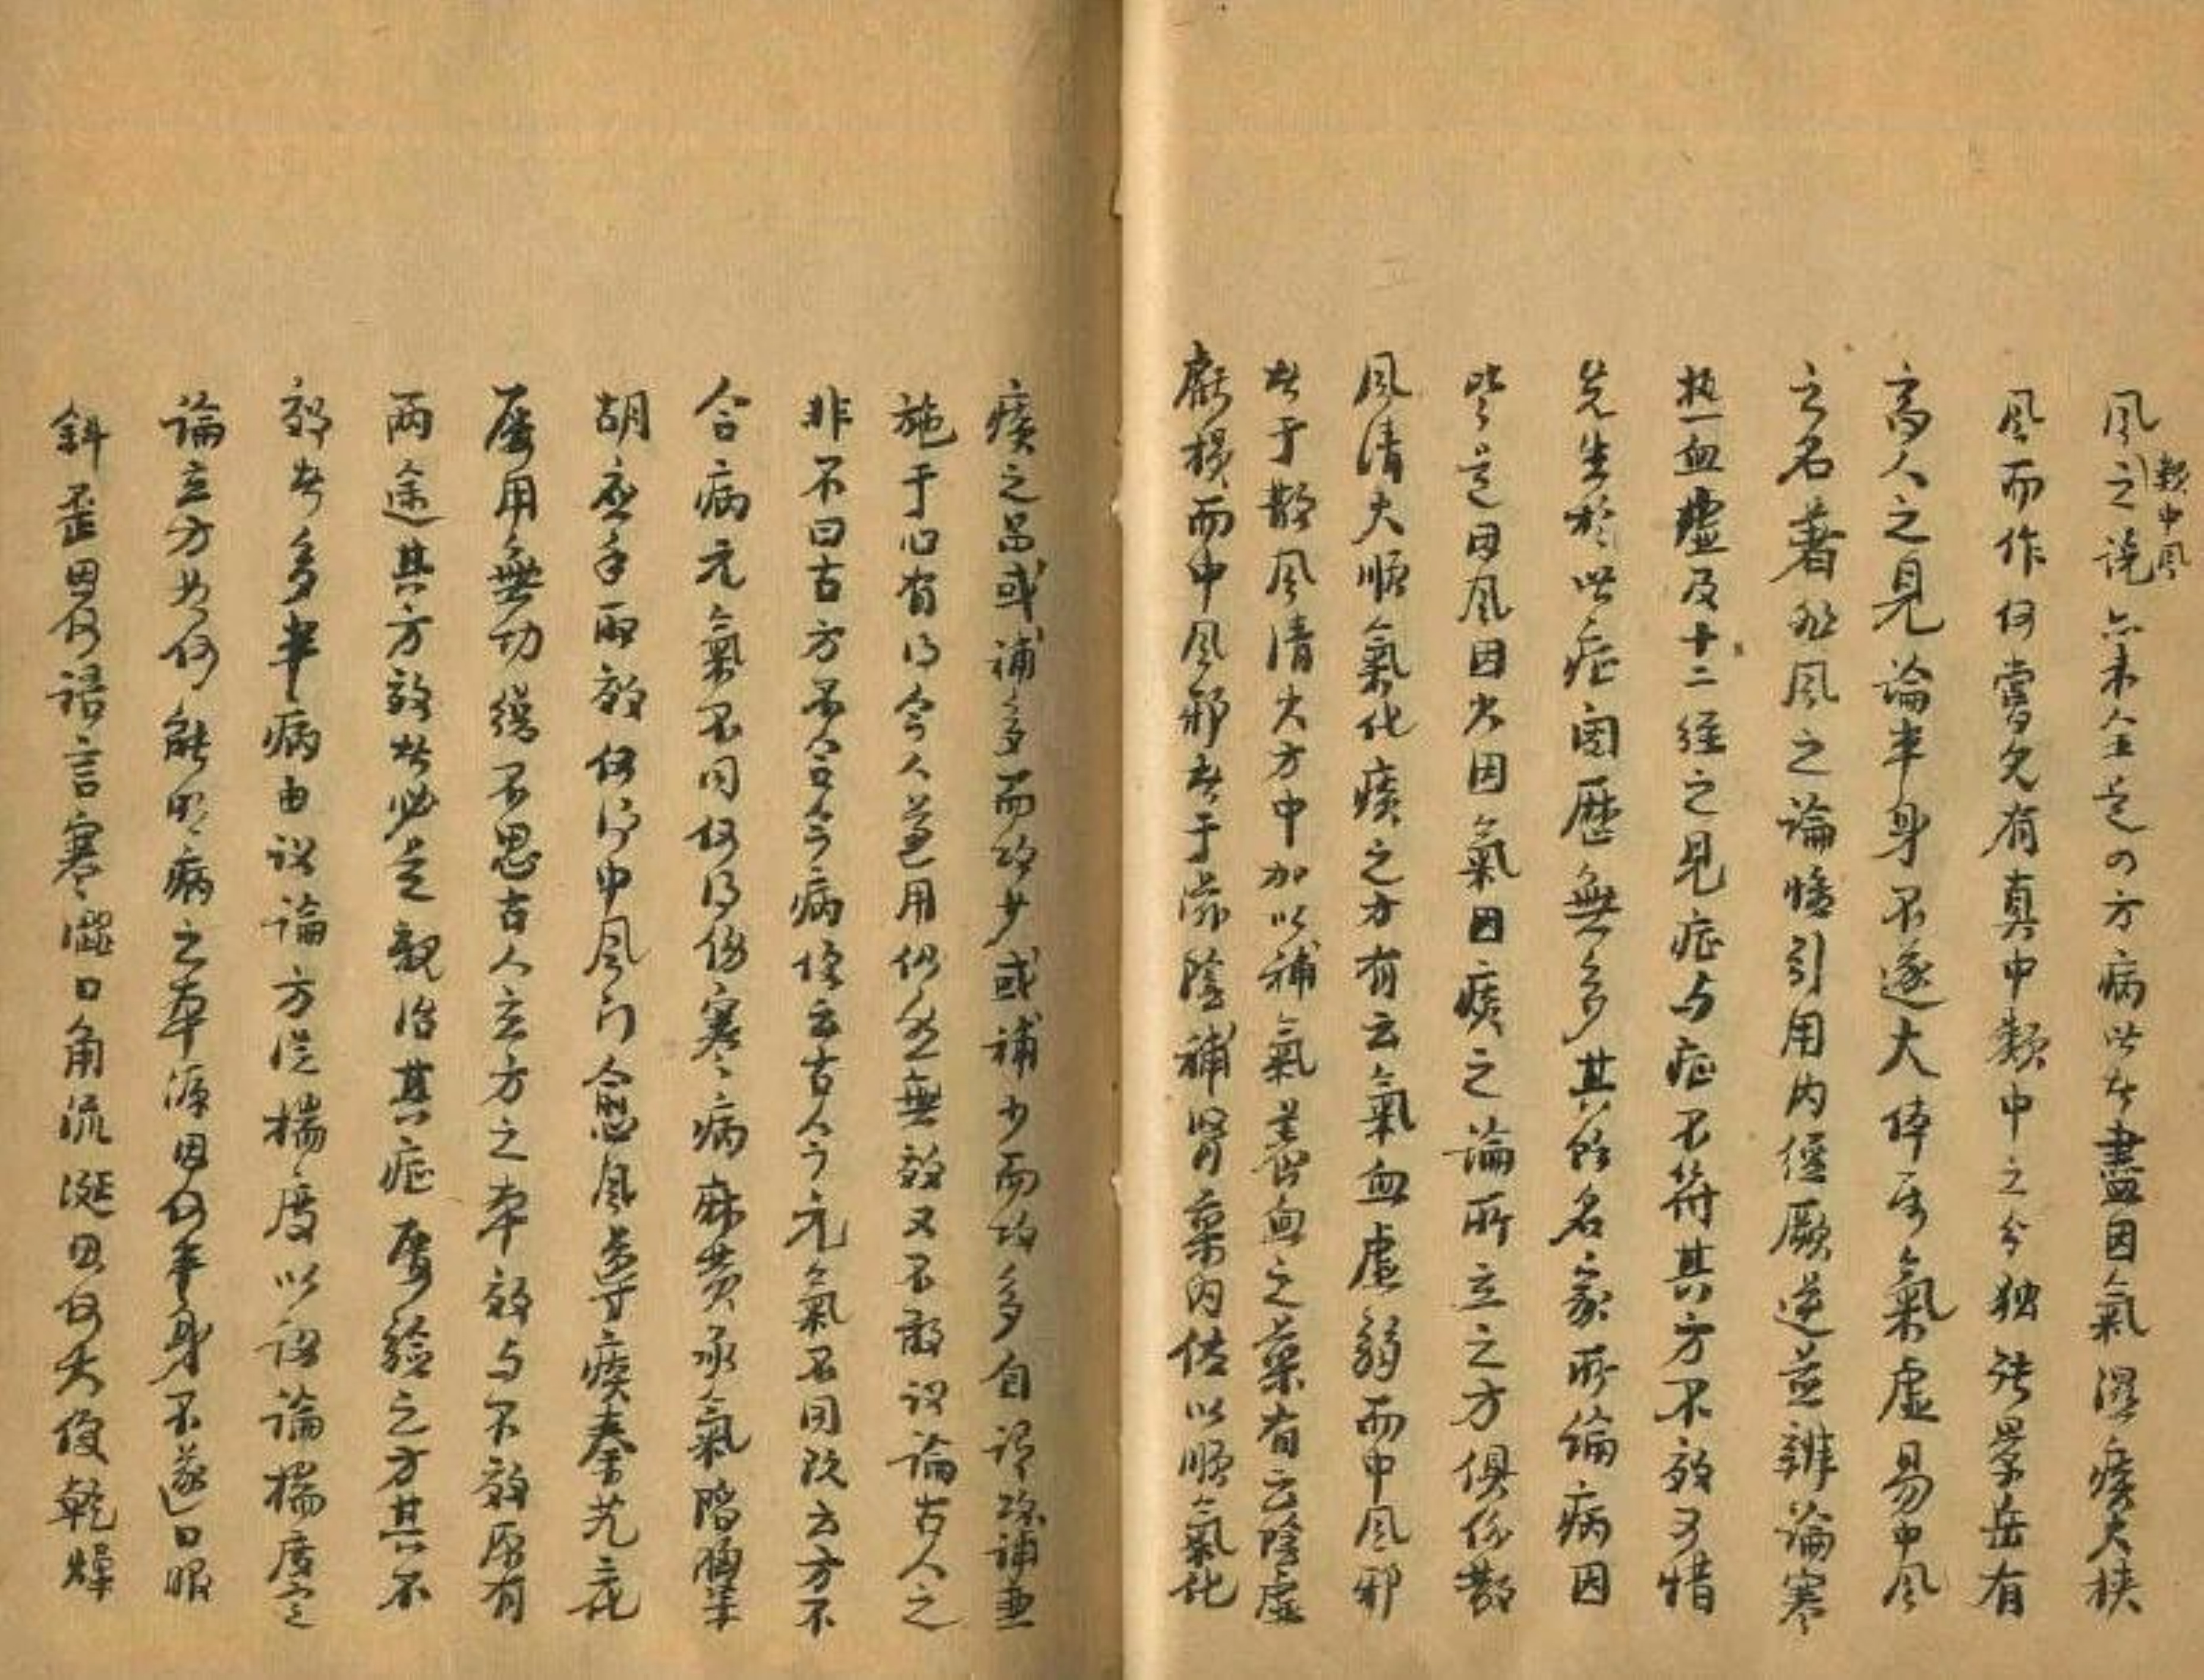 風之說亦未全是四方病此者盡因氣濕痰火挾
類中風
風而作何嘗又有真中類中之分独張景岳有
高人之見論半身不遂大体属氣虛易中風
之名著非風之論惜引用內經厥逆並辨論寒
热血虛及十二經之見症与症不符其方不效可惜
先生於此症閱歷無多其餘名家所論病因
皆是因風因火因氣因痰之論所立之方俱係散
風清火順氣化痰之方有云氣血虛弱而中風邪
者于散風清火方中加以補氣養血之藥有云陰虛
虧損而中風邪者于滋陰補腎藥內佐以順氣化
痰之品或補多而攻少或補少而攻多自謂攻補兼
施于心有得今人遵用仍然無效又不敢议論古人之
非不曰古方不合今病惟云古人今元氣不同既云方不
合病元氣不同何得伤寒病麻黄承氣陷胸柴
胡应手取效何得中風门愈風導痰秦艽三化
屡用無功總不思古人立方之本效与不效原有
两途其方效者必是親治其症屡驗之方其不
效者多半病由议論方從揣度以议論揣度定
論立方如何能明病之本源因何半身不遂口眼
斜歪因何語言寒澁口角流涎因何大便乾燥